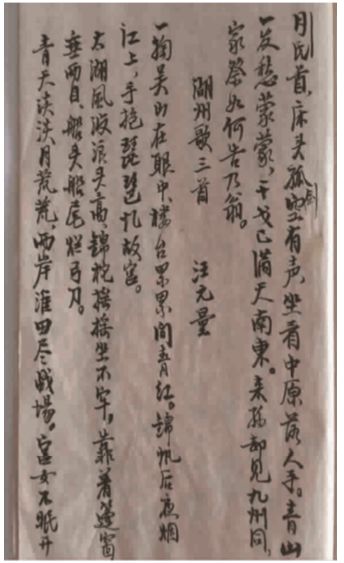 月氏首，床头孤剑空有声，坐看中原落人手。青山
一发愁蒙蒙，干戈已满天南东。来孙却见九州同，
家祭如何告乃翁。
湖州歌三首 汪元量
一掬吴山在眼中，楼台累累间青红。锦帆后夜烟
江上，手抱琵琶忆故宫。
太湖风波浪头高，锦柁摇摇坐不牢，靠着篷窗
垂两目，船头船尾烂弓刀。
青天淡淡月荒荒，两岸淮田尽战场。宫女不眠开